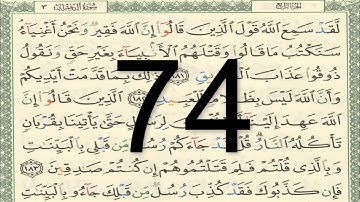 الجزء الرابع سورة آل عمران ٣
لَقَدْ سَمِعَ اللَّهُ قَوْلَ الَّذِينَ قَالُوا إِنَّ اللَّهَ فَقِيرٌ وَنَحْنُ أَغْنِيَاءُ
سَنَكْتُبُ مَا قَالُوا وَقَتْلَهُمُ الْأَنبِيَاءَ بِغَيْرِ حَقٍّ وَنَقُولُ
ذُوقُوا عَذَابَ ١٨١ بِمَا قَدَّمَتْ أَيْدِيكُمْ
وَأَنَّ اللَّهَ لَيْسَ بِظَلَّامٍ لِّلْعَبِيدِ ١٨٢ الَّذِينَ قَالُوا
اللَّهَ عَهِدَ إِلَيْنَا حَتَّىٰ يَأْتِيَنَا بِقُرْبَانٍ
تَأْكُلُهُ النَّارُ رُسُلٌ مِّن قَبْلِي بِالْبَيِّنَاتِ
وَبِالَّذِي قُلْتُمْ فَلِمَ قَتَلْتُمُوهُمْ إِن كُنتُمْ صَادِقِينَ ١٨٣
فَإِن كَذَّبُوكَ فَقَدْ كُذِّبَ رُسُلٌ مِّن قَبْلِكَ جَاءُو بِالْبَيِّنَاتِ
74